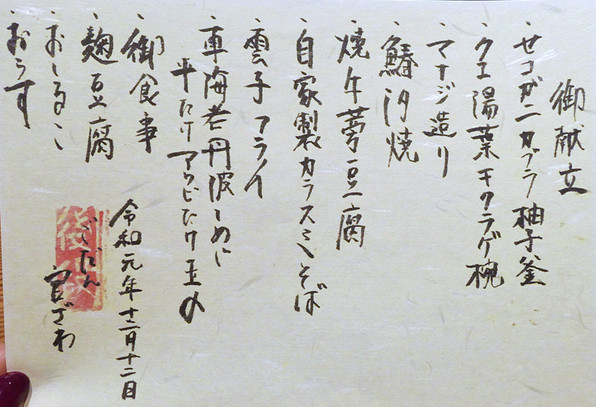 御献立
・セコガニカブラ柚子釜
・クエ湯葉キクラゲ椀
・マナジ造り
・鰆汐焼
・焼牛蒡豆腐
・自家製カラスミそば
・雲子フライ
・車海老丹波しめじ
平たけアワビたけ玉の
・御食事
・麹豆腐
・おしるこ
・おうす
令和元年十二月十二日
ごだん
宮ざわ
後段